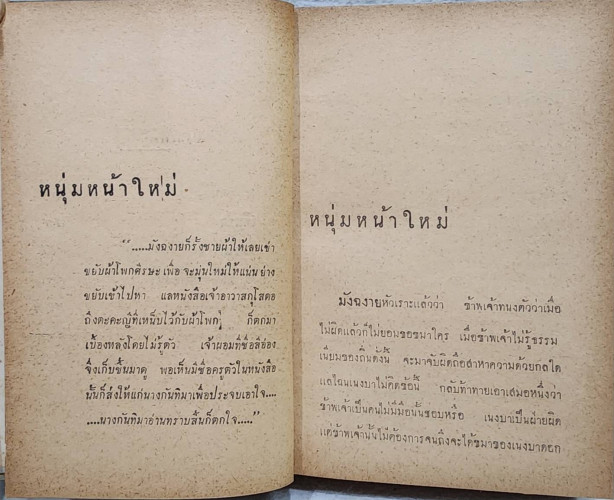 หนุ่มหน้าใหม่
“.....มังฉงายก็รั้งชายผ้าให้เลยเข่า
ขยับผ้าโพกศีรษะ เพื่อ จะมุ่นใหม่ให้แน่น ย่าง
ขยับเข้าไปหา แลหนังสือเจ้าอาวาสกุโสดอ
ถึงตะคะญีที่เหน็บไว้กับผ้าโพก ก็ตกมา
เบื้องหลังโดยไม่รู้ตัว เจ้าผอมที่ชื่อสีอ่อง
จึ่งเก็บขึ้นมาดู พอเห็นมีชื่อครูตัวในหนังสือ
นั้นก็ส่งให้แก่นางกันทิมาเพื่อประจบเอาใจ....
....นางกันทิมาอ่านทราบสิ้นก็ตกใจ.....”
หนุ่มหน้าใหม่
มังฉงายหัวเราะแล้วว่า ข้าพเจ้าทนงตัวว่าเมื่อ
ไม่ผิดแล้วก็ไม่ยอมขอขมาใคร เมื่อข้าพเจ้าไม่รู้ธรรม
เนียมของถิ่นดังนี้ จะมาจับผิดถือสาหาความด้วยกลใด
แลไฉนเนงบาไม่คิดข้อนี้ กลับท้าทายเอาเสมอหนึ่งว่า
ข้าพเจ้าเป็นคนไม่มีมือนั้นชอบหรือ เนงบาเป็นฝ่ายผิด
แต่ข้าพเจ้านั้นไม่ต้องการจนถึงจะได้ขมาของเนงบาดอก